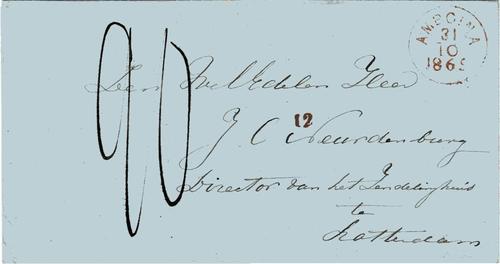 AMBOINA
31
10
1865
90
Den WelEdelen Heer
12
J C Neurdenburg
Director van het Zendelinghuis
te
Rotterdam